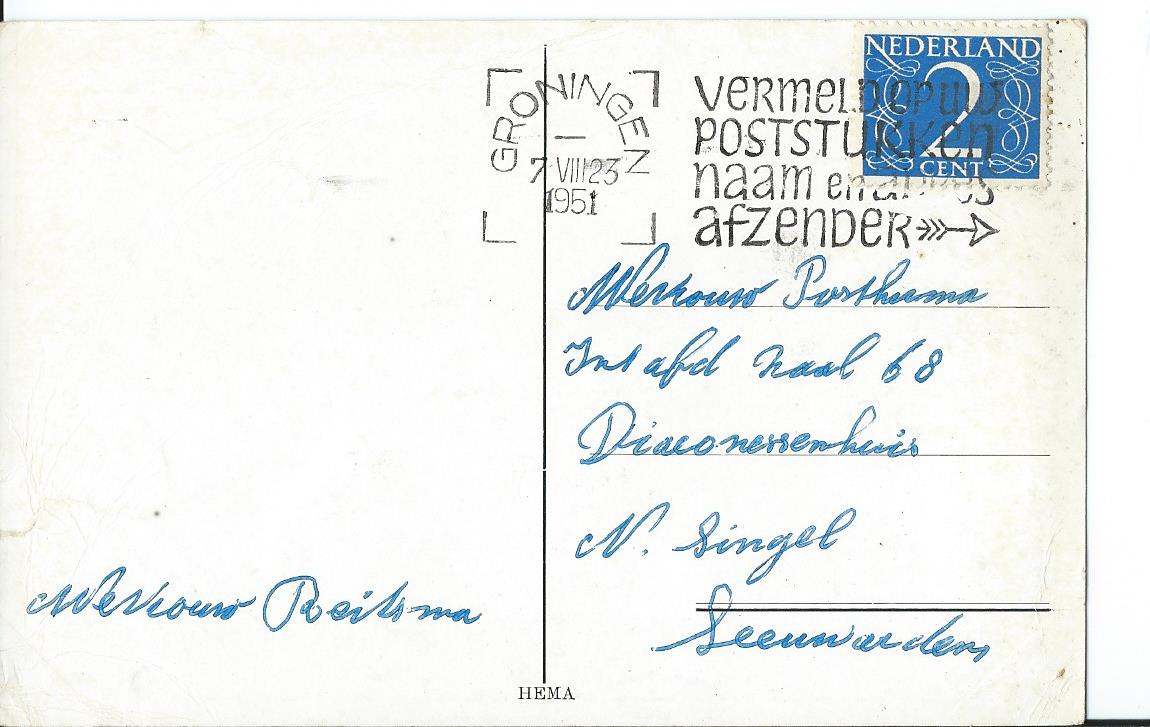 NEDERLAND
2
CENT
GRONINGEN
7 VIII 23
1951
VERMELD OP UW
POSTSTUKKEN
naam en
afzender
Mevrouw Posthuma
Int afd zaal 68
Diaconessenhuis
N. Singel
Leeuwarden
Mevrouw Reitsma
HEMA